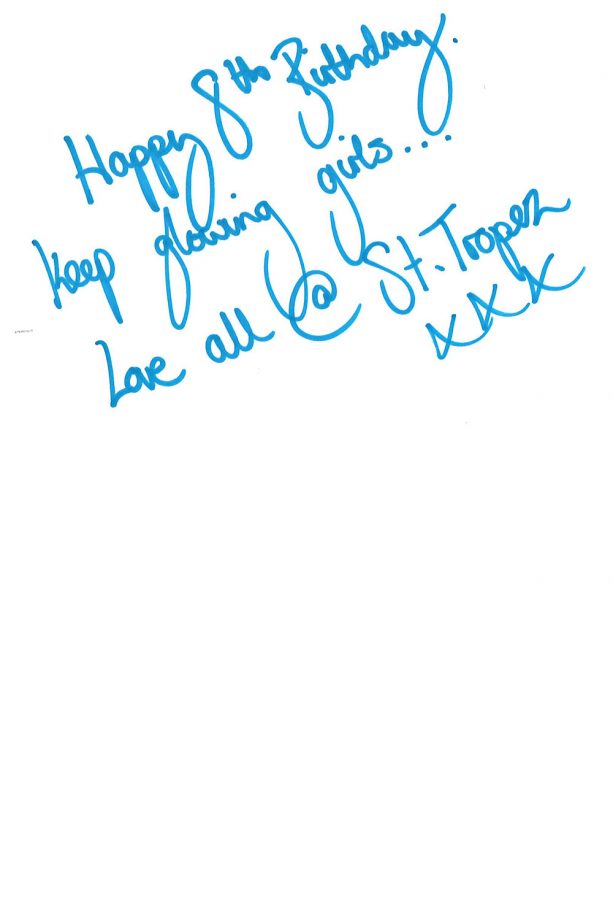 Happy 8th Birthday.
Keep glowing girls...
Love all @ St. Tropez
xxx